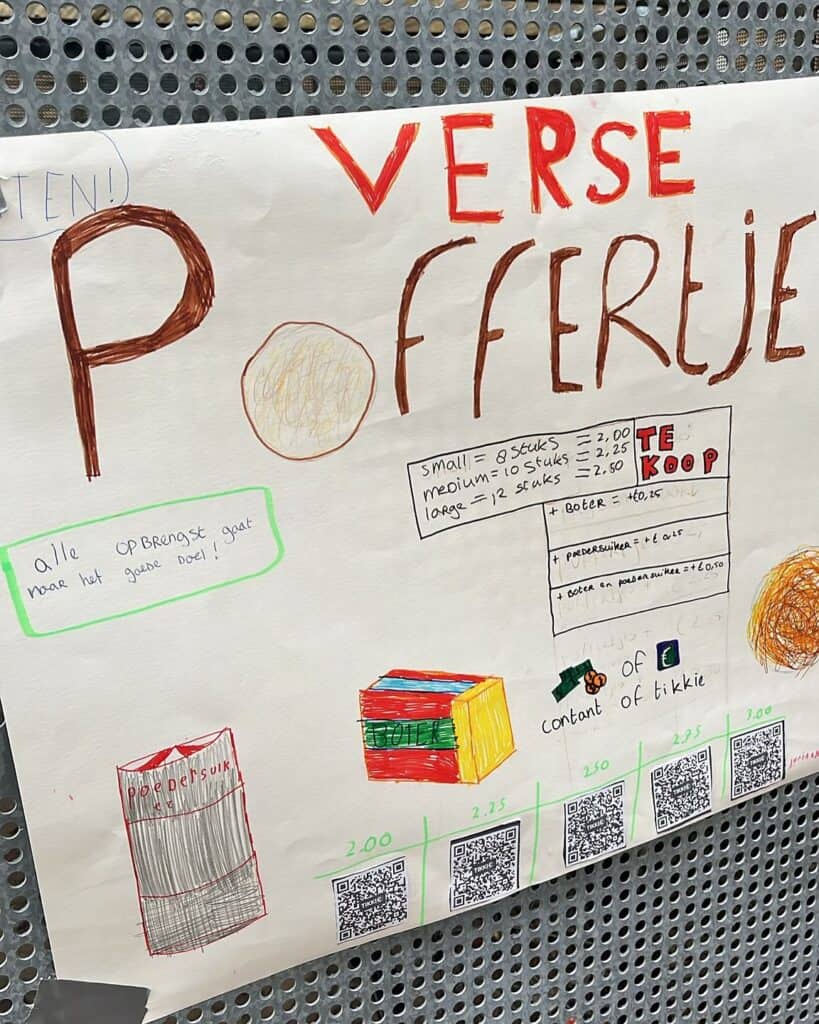 TEN!
VERSE
POFFERTJE
small = 8 stuks = 2,00
medium = 10 stuks = 2,25
large = 12 stuks = 2,50
TE
KOOP
+ BOTER = +€0,25
+ POEDERSUIKER = + € 0,25
+ BOTER en POEDERSUIKER = + € 0,50
alle OPBRENGST gaat
naar het goede Doel!
of €
contant of tikkie
BOTER
POEDERSUIK
ER
2.00 2.25 2.50 2.75 3.00
TIKKIE TIKKIE TIKKIE TIKKIE TIKKIE